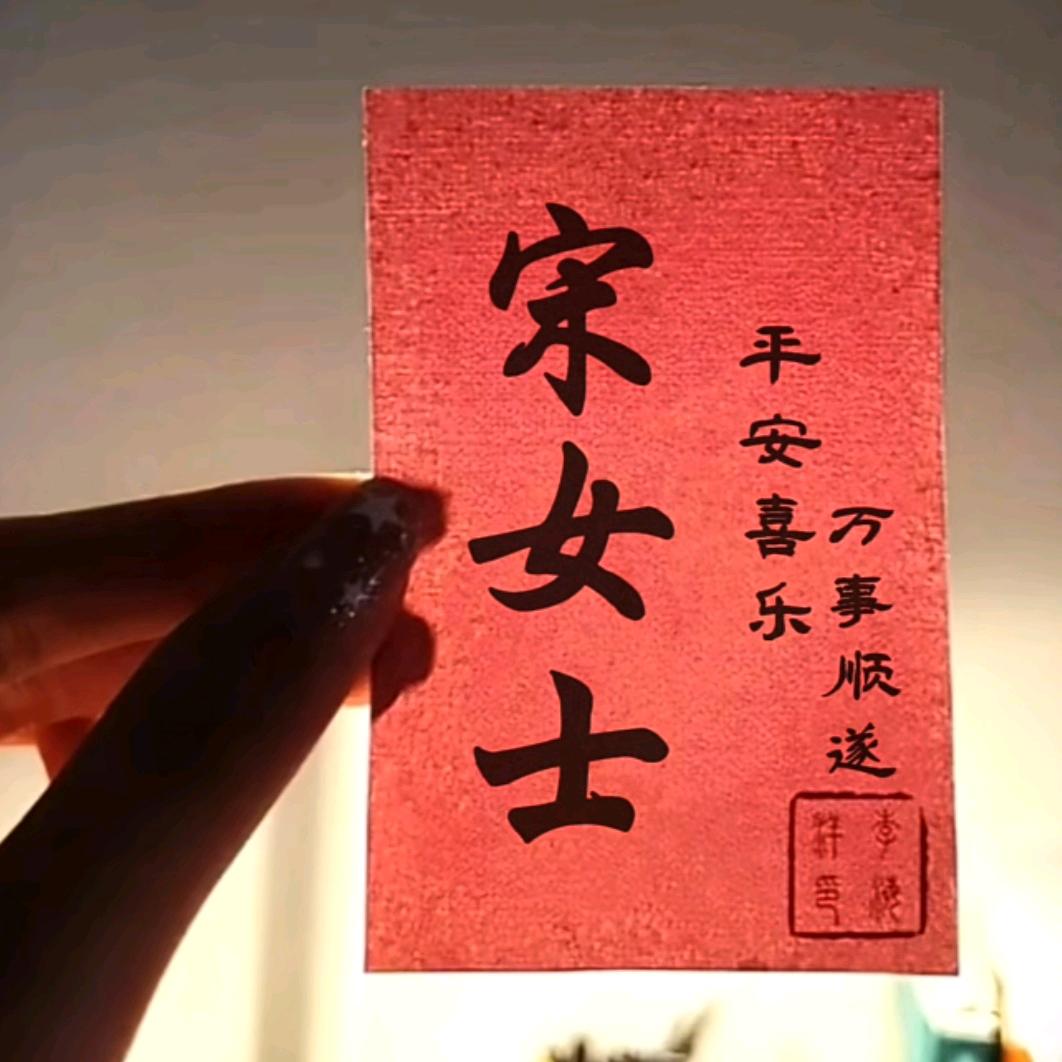 宋女士
平安喜乐
万事顺遂